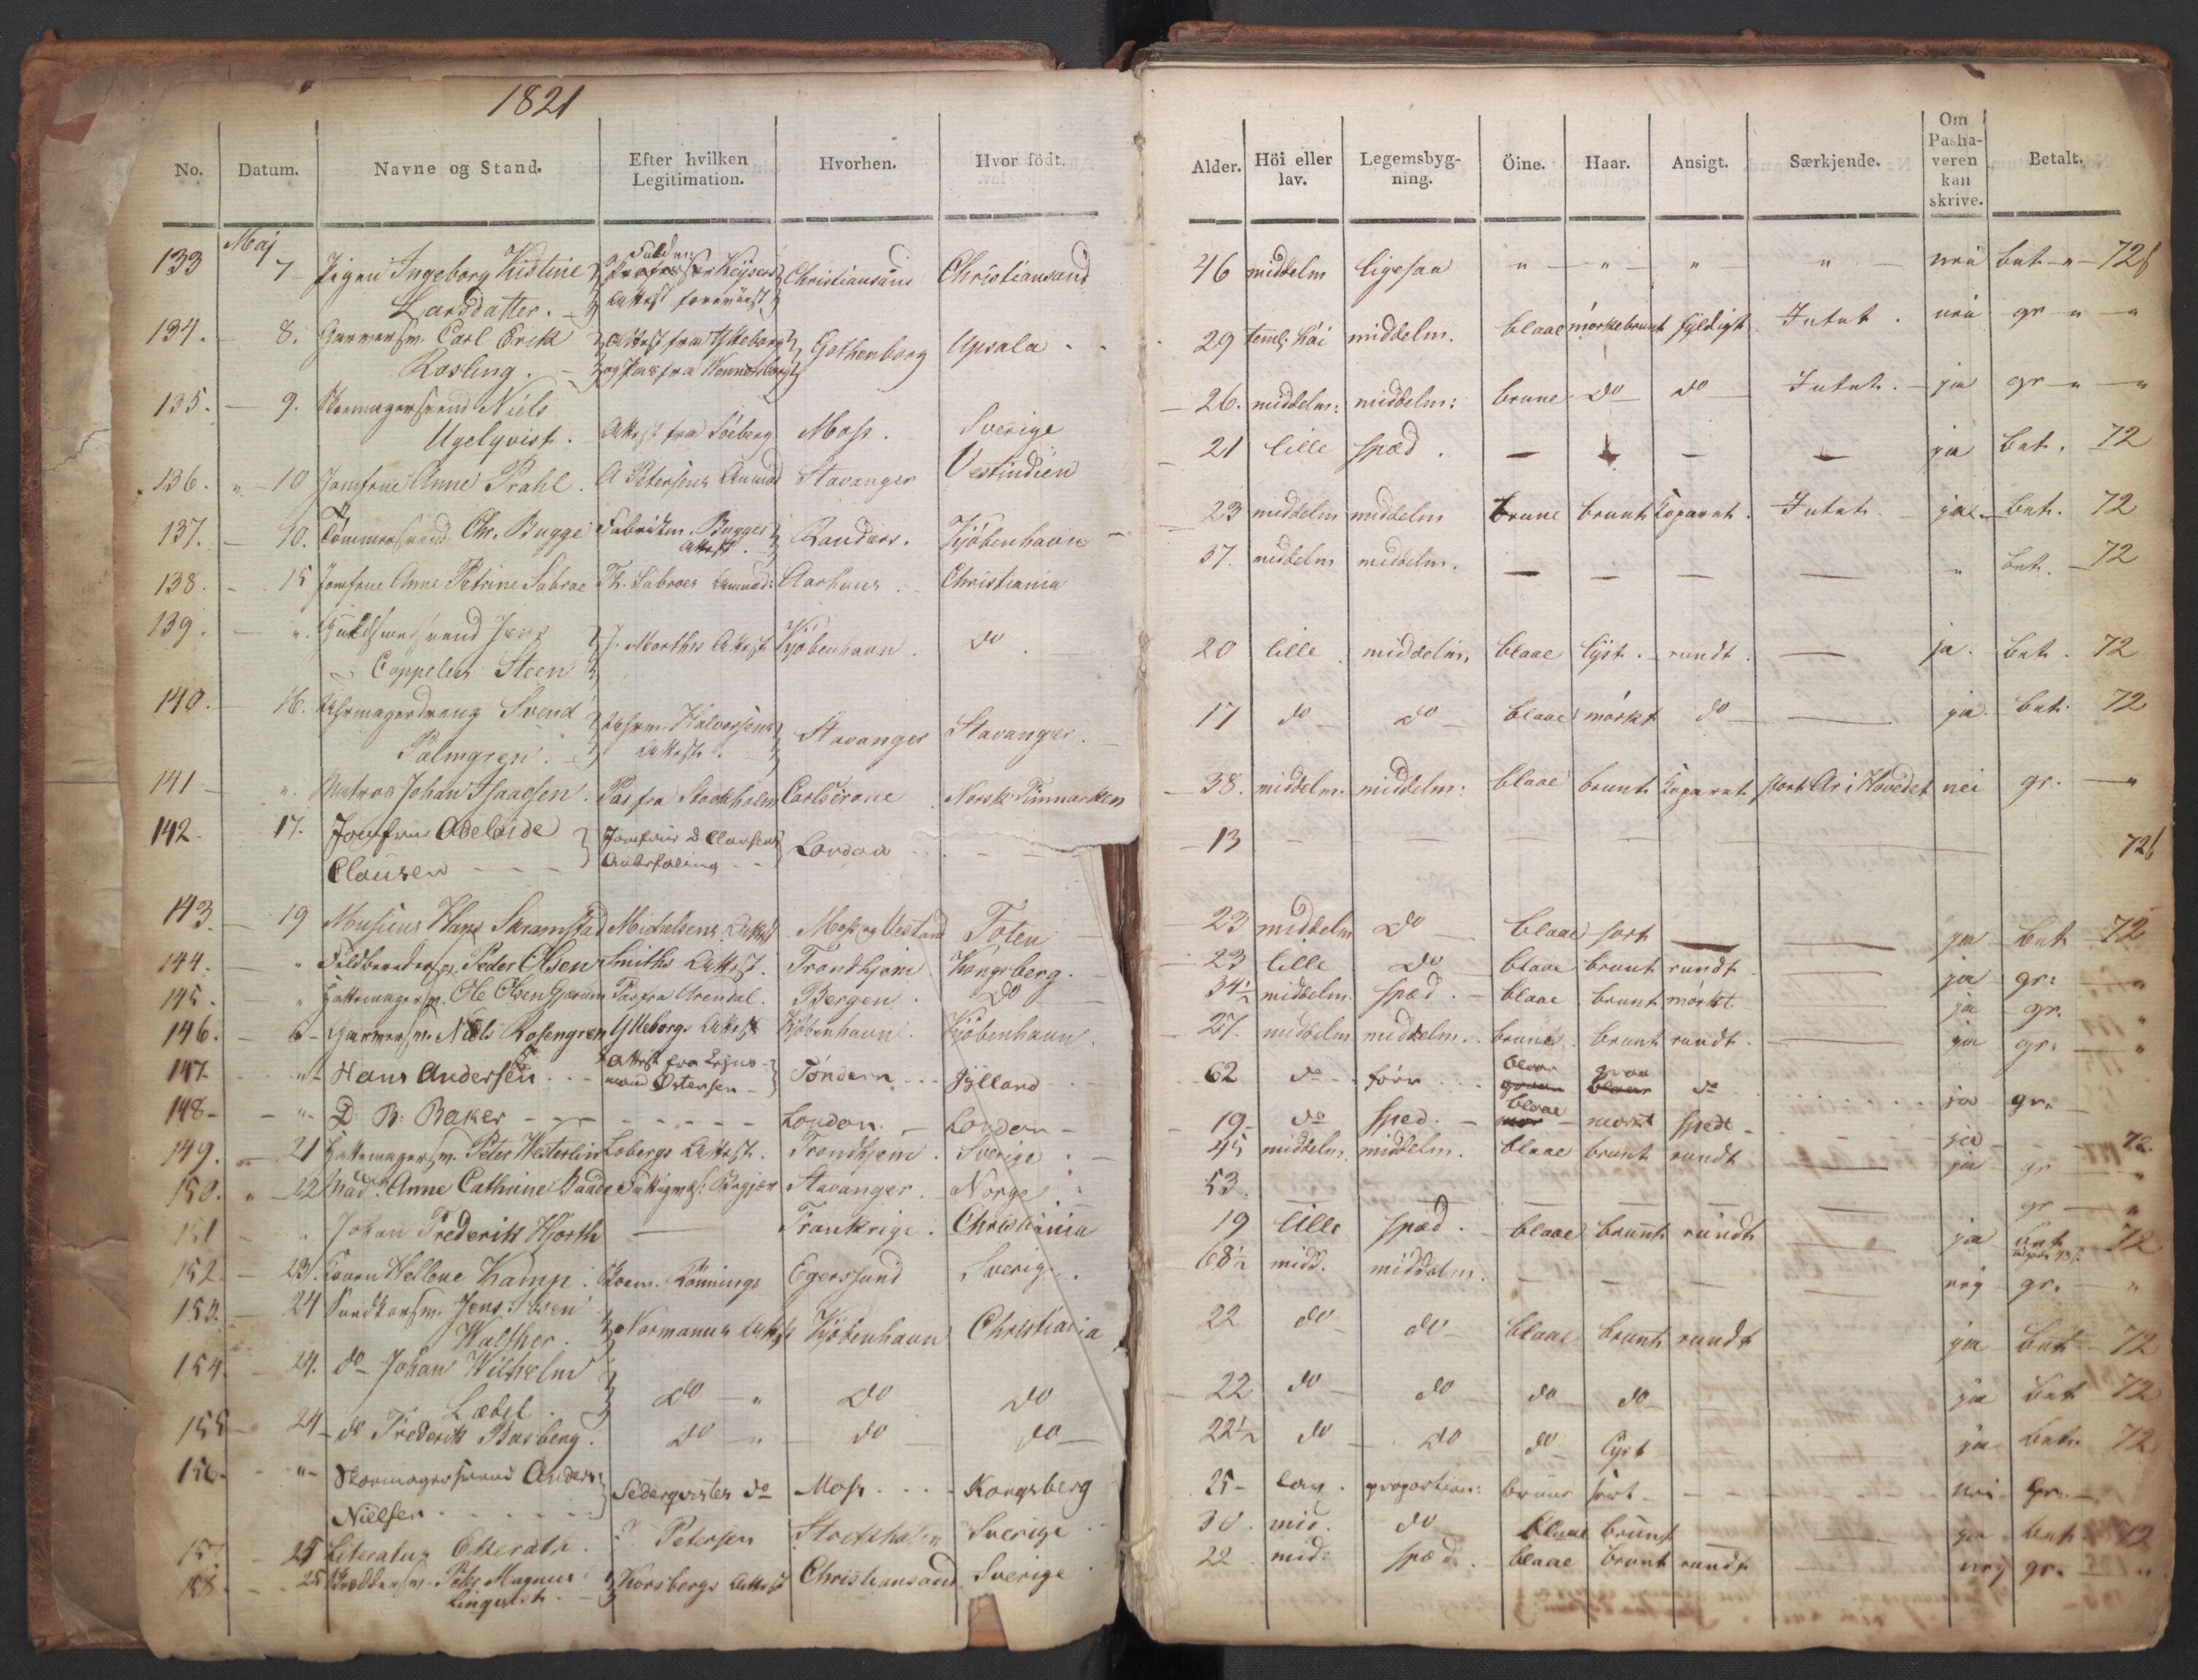 1821
No. Datum. Navne og Stand. Efter hvilken Legitimation. Hvorhen. Hvor födt. Alder. Höi eller lav. Legemsbyg-ning. Öine. Haar. Ansigt. Særkjende. Om Pasha-veren kan skrive. Betalt.
Maj
133 7 Pigen Ingeborg Kistine Christiansand Christiansand 46 middelm ligesaa " " " " nei bet " 72 ß
Larsdatter. Attest
134. 8. Garversv. Carl Erik Attest fra Gothenborg Upsala 29 teml: høi middelm. blaae mørkebrunt fyldigt Intet. nei gr " "
Rosling. og Pas fra
135. 9. Skomagersvend Niels 26. middelm: middelm: brune do do Intet. ja gr " "
Ugelqvist. Attest fra Söeberg Moss. Sverige
136. " 10 Jomfrue Anne Prahl. A Petersens Anmod Stavanger Vestindien 21 lille spæd. — — — — ja bet. 72
137. 10. Tömmersvend Chr. Bugge Fabrikm. Bugges Attest Randers. Kjöbenhavn 23 middelm middelm brune brunt Koparret. Intet. ja bet. 72
138. 15 Jomfrue Anne Petrine Sabroe Th. Sabroes Anmod: Aarhuus Christiania 37. middelm middelm. — — — — " bet. 72
139. ". Guldsmedsvend Jens J. Marthis Attest Kjöbenhavn. do. 20 lille middelm. blaae lyst. rundt. — ja. bet. 72
Cappelen Steen
140. 16. Uhrmagerdreng Svend Uhrm. Halvorsens Stavanger Stavanger. 17 do do blaae mørkt do — ja. bet. 72
Palmgren. Attest.
141 ". Matros Johan Isaacsen. Pas fra Stockholm Carlscrone Norsk Finmarken 38. middelm. middelm: blaae brunt Koparret stort Ar i Hovedet nei gr. "
142. 17. Jomfrue Adelaide Jomfrue A Clausens London 13 — — — — — 72 ß
Clausen Anbefaling
143. 19 Musicus Hans Skramstad Michelsens Attest Moss og Toten 23 middelm do blaae sort — — ja bet 72
144. " Feldberedersv. Peder Olsen Smiths Attest. Trondhjem. Kongsberg. 23 lille do blaae brunt rundt — ja gr: "
145. " Hattemagersv. Ole Olsen Pas fra Arendal. Bergen. do 34½ middelm. spæd. blaae brunt mørkt — ja gr. "
146. " Garversv. Niels Rosengren Attest Kjöbenhavn. Kjöbenhavn. 27. middelm middelm. brune. brunt rundt. — ja gr: "
147. " Hans Andersen Attest fra Østersen Töndern Jylland 62 do förr blaae graae do ja gr.
148 " D: B: Baker London. London 19 do sped. blaae mørkt spedt ja 72.
149. 21 Hattemagersv. Peter Westerlin Lobergs Attest. Trondhjem. Sverige. 45 middelm. middelm. blaae brunt rundt — ja gr "
150. " 22 Mad. Anne Cathrine Stavanger. Norge. 53. — — gr "
151 " Johan Frederik Hjorth — Frankrige. Christiania 19 lille spæd. blaae brunt rundt — ja bet 72
152. 23. Konen Hellene Kamp. Skoem. Rönnings Egersund Sverige. 68½ midd. middelm. — — — nei gr. "
153. 24 Snedkersv. Jens Ibsen Normanns Attest Kjöbenhavn Christiania 22 do do blaae brunt rundt ja bet 72
Walther.
154. 24. do Johan Wilhelm do " do do 22 do do do do ja bet 72
Lædel.
155 24 do Frederik Basberg. do " do do 22½ do do do lyst ja bet. 72
156. " Skomagersvend Anders Sederqvistes do Moss Kongsberg 25 lav. proportion: brune sort nei gr.
Nielsen
157. 25 Literatus Petersen Stockholm Sverige 30. mid. do blaae brunt — ja bet 72
158. 25 Peter Magnus Korsbergs Attest Christiansand Sverige 22 mid: spæd. blaae brunt rundt — nei gr. "